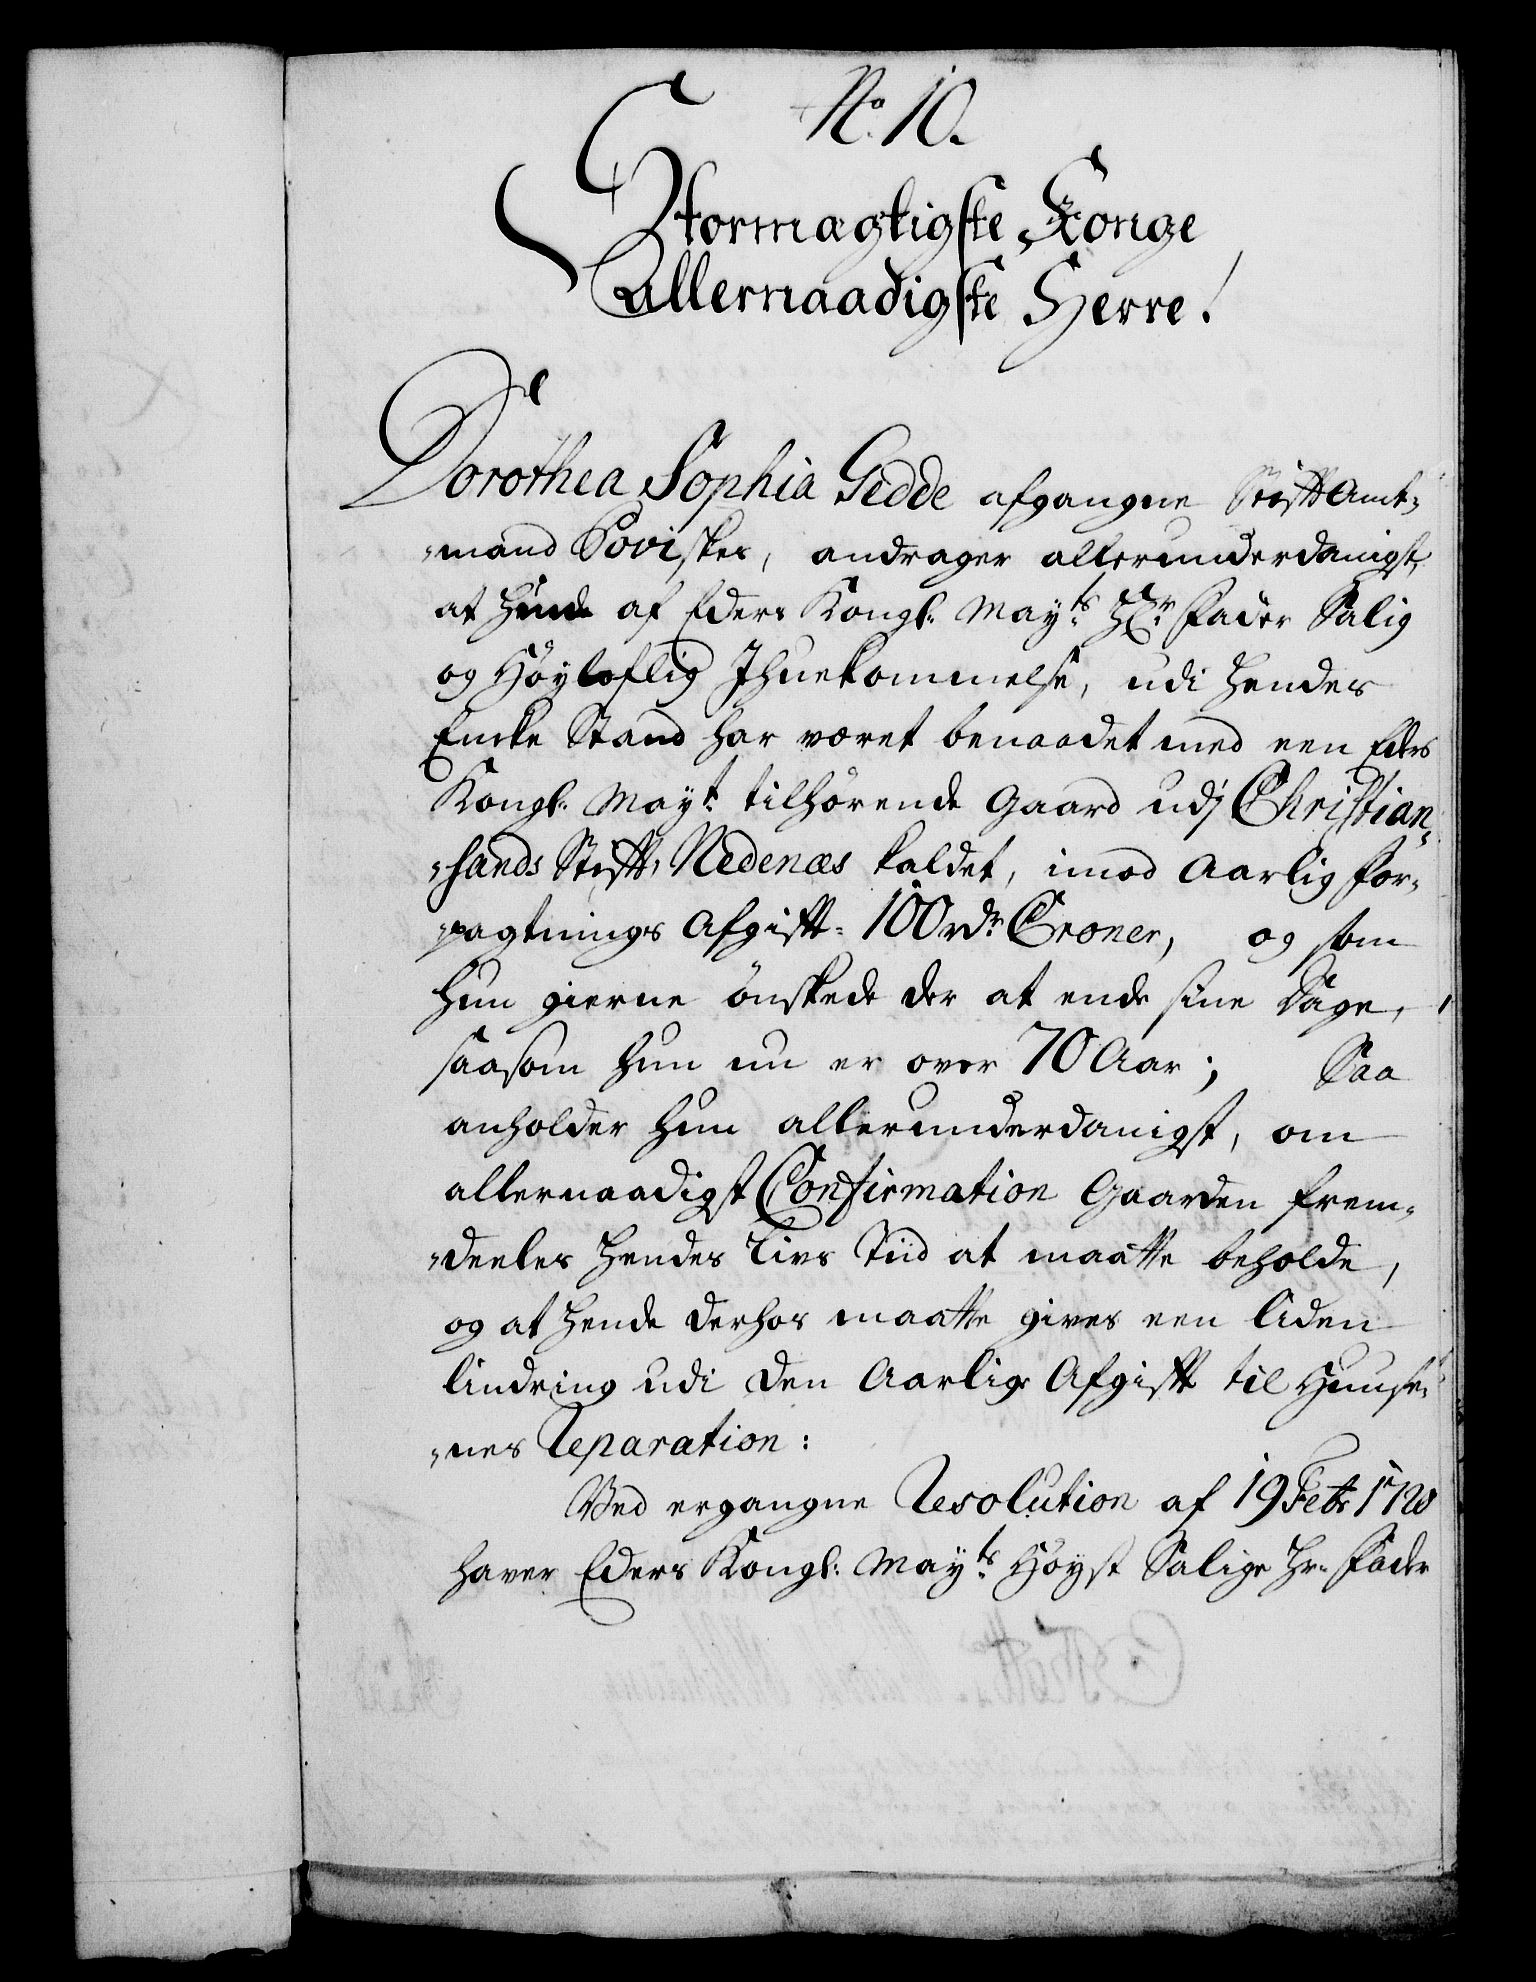 No. 10.
Stormægtigste Konge
Allernaadigste Herre!
Dorothea Sophia Gedde afgangne Stiftamt-
-mand Povisches, andrager allerunderdanigst,
at hende af Eders Kongl: Mayts Hr. Fader Salig
og Höyloflig Ihuekommelse, udi hendes
Encke Stand har været benaadet med een Eders
Kongl: Mayt: tilhörende Gaard udj Christian-
-sands Stift, Nedenæs kaldet, imod Aarlig For-
-pagtnings Afgift 100 rdr. Croner, og som
hun gierne önskede der at ende sine Dage,
saasom hun nu er over 70 Aar; Saa
anholder hun allerunderdanigst, om
allernaadigst Confirmation Gaarden frem-
-deeles hendes Livs Tiid at maatte beholde,
og at hende derhos maatte gives een liden
lindring udi den Aarlige Afgift til Huuse-
-nes Reparation:
Ved ergangne Resolution af 19 Febr 1720
haver Eders Kongl: Mayts Höyst Salige Hr. Fader